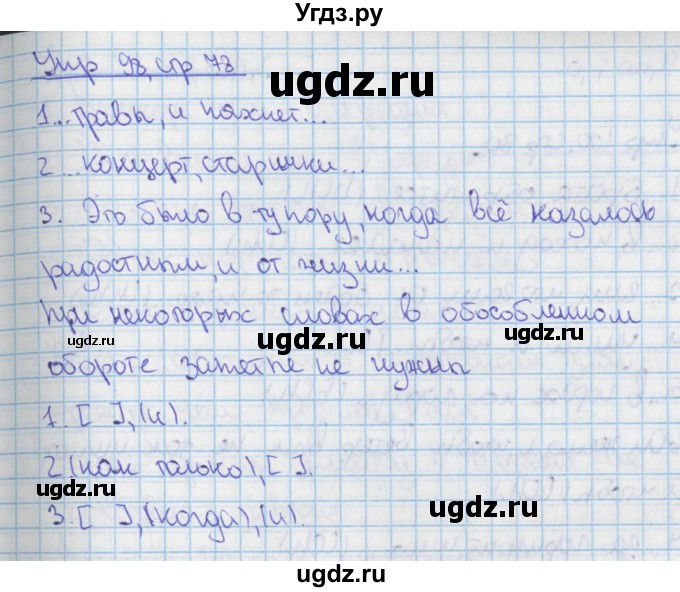 Угдз.ру
Упр 98, стр 78
ugdz.ru
1...травы, и пахнет...
2...концерт, старшики...
3. Это было в ту пору, когда всё казалось
радостным, и от жизни...
ugdz.ru
При некоторых словах в обособленном
ugdz.ru
обороте запятые не нужны
1. [ ], (и).
2 (как только), [ ].
ugdz.ru
3. [ ], (когда), (и).
ugdz.ru
ugdz.ru